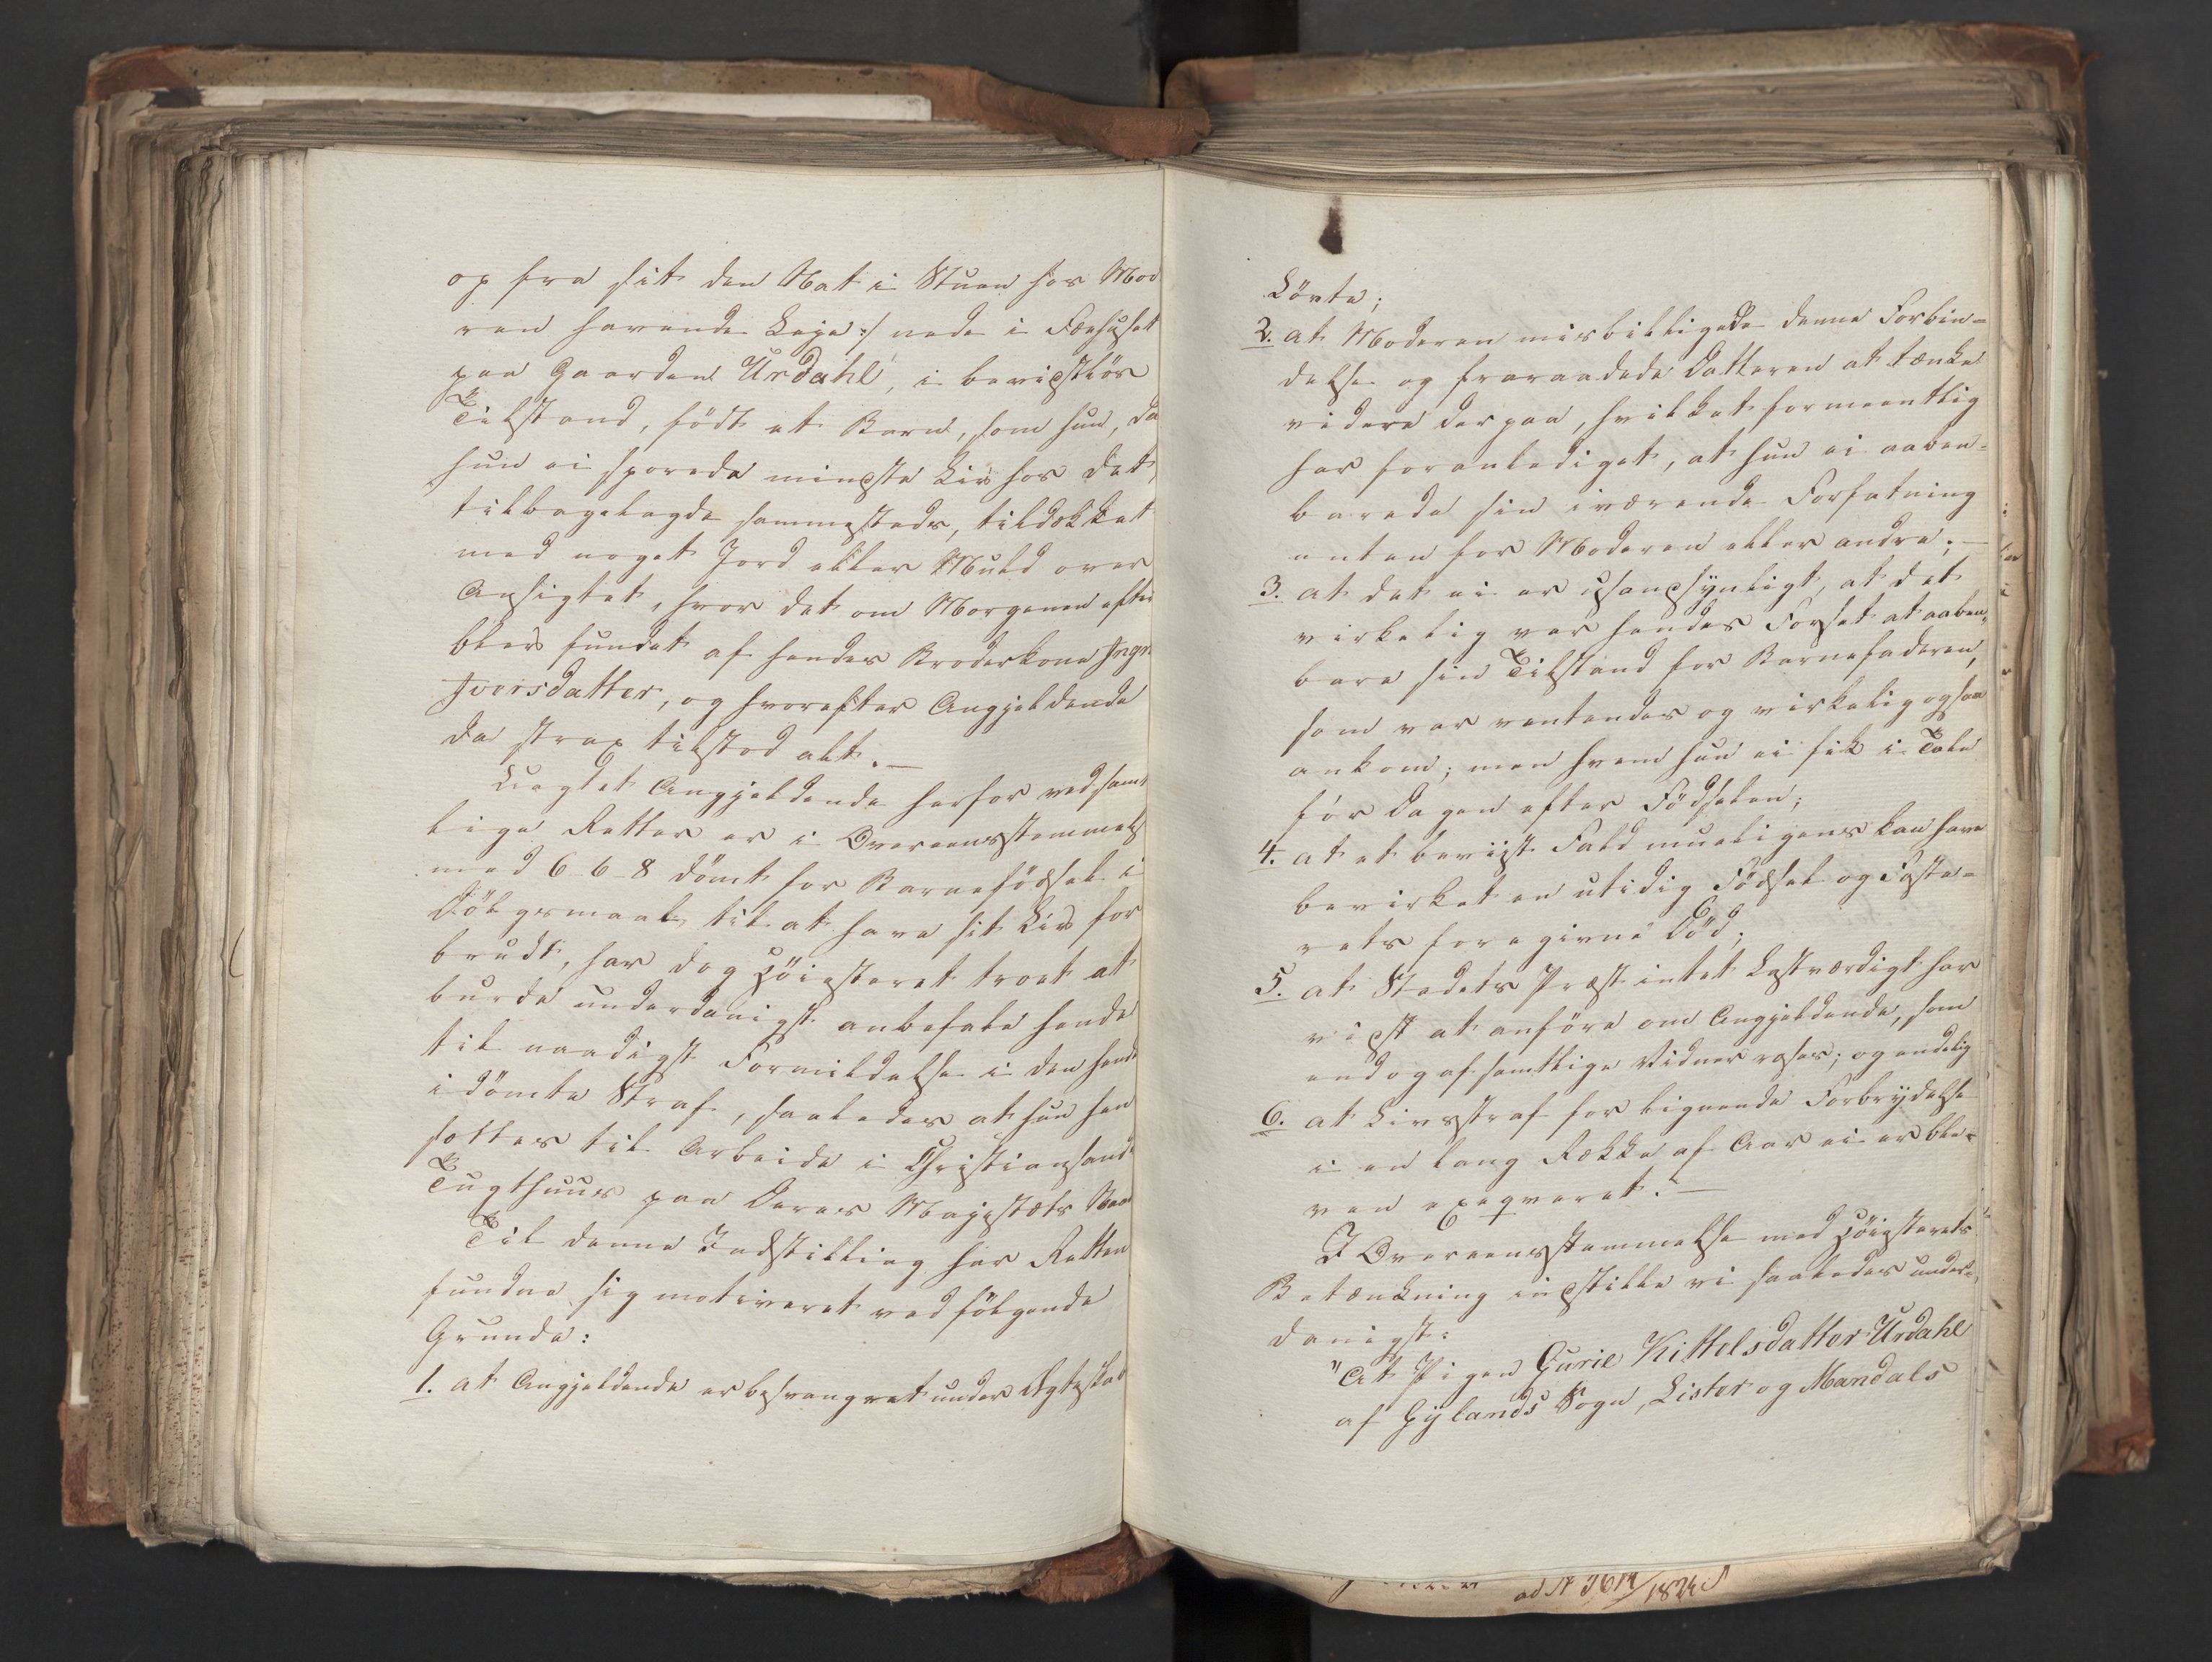 op fra sit den Nat i Stuen hos Mod
ren havende Leje :/ nede i Fæehuset
paa Gaarden Urdahl, i bevidstløs
Tilstand, født et Barn, som hun, da
hun ei sporede mindste Liv hos det,
tilbagelagde sammesteds, tildækket
med noget Jord eller Muld over
Ansigtet, hvor det om Morgenen efter
blev fundet af hendes Broderkone Ingr
Iversdatter, og hvorefter Angjeldende
da strax tilstod alt. —
Uagtet Angjeldende herfor ved samt
lige Retter er i Overeensstemmels
med 6-6-8 dømt for Barnefødsel i
Dølgsmaal, til at have sit Liv for
brudt, har dog Høiesteret troet at
burde underdanigst anbefale hende
til naadigst Formildelse i den hend
idømte Straf, saaledes at hun hen
sættes til Arbeide i Christiansands
Tugthuus paa Deres Majestæts Naad
Til denne Indstilling har Retten
fundne sig motiveret ved følgende
Grunde:
1. at Angjeldende er besvangret under Ægteskab
Løvte;
2. at Moderen misbilligede denne Forbin-
delse og fraraadede Datteren at tænke
videre derpaa, hvilket formeentlig
har foranlediget, at hun ei aaben-
barede sin iværende Forfatning
enten for Moderen eller andre; —
3. at det ei er usandsynligt, at det
virkelig var hendes Forsæt at aaben-
bare sin Tilstand for Barnefaderen,
som var ventendes og virkelig ogsaa
ankom; men hvem hun ei fik i Tale
før Dagen efter Fødselen;
4. at et beviist Fald mueligens kan have
bevirket en utidig Fødsel og Foste-
rets foregivne Død;
5. at Stedets Præst intet Lastværdigt har
vidst at anføre om Angjeldende, som
endog af samtlige Vidner roses; og endelig
6. at Livsstraf for lignende Forbrydelse
i en lang Række af Aar ei er ble-
ven exeqveret. —
I Overeensstemmelse med Høiesterets
Betænkning indstille vi saaledes under-
danigst:
"At Pigen Gurie Kittelsdatter Urdahl
af Gylands Sogn, Lister og Mandals